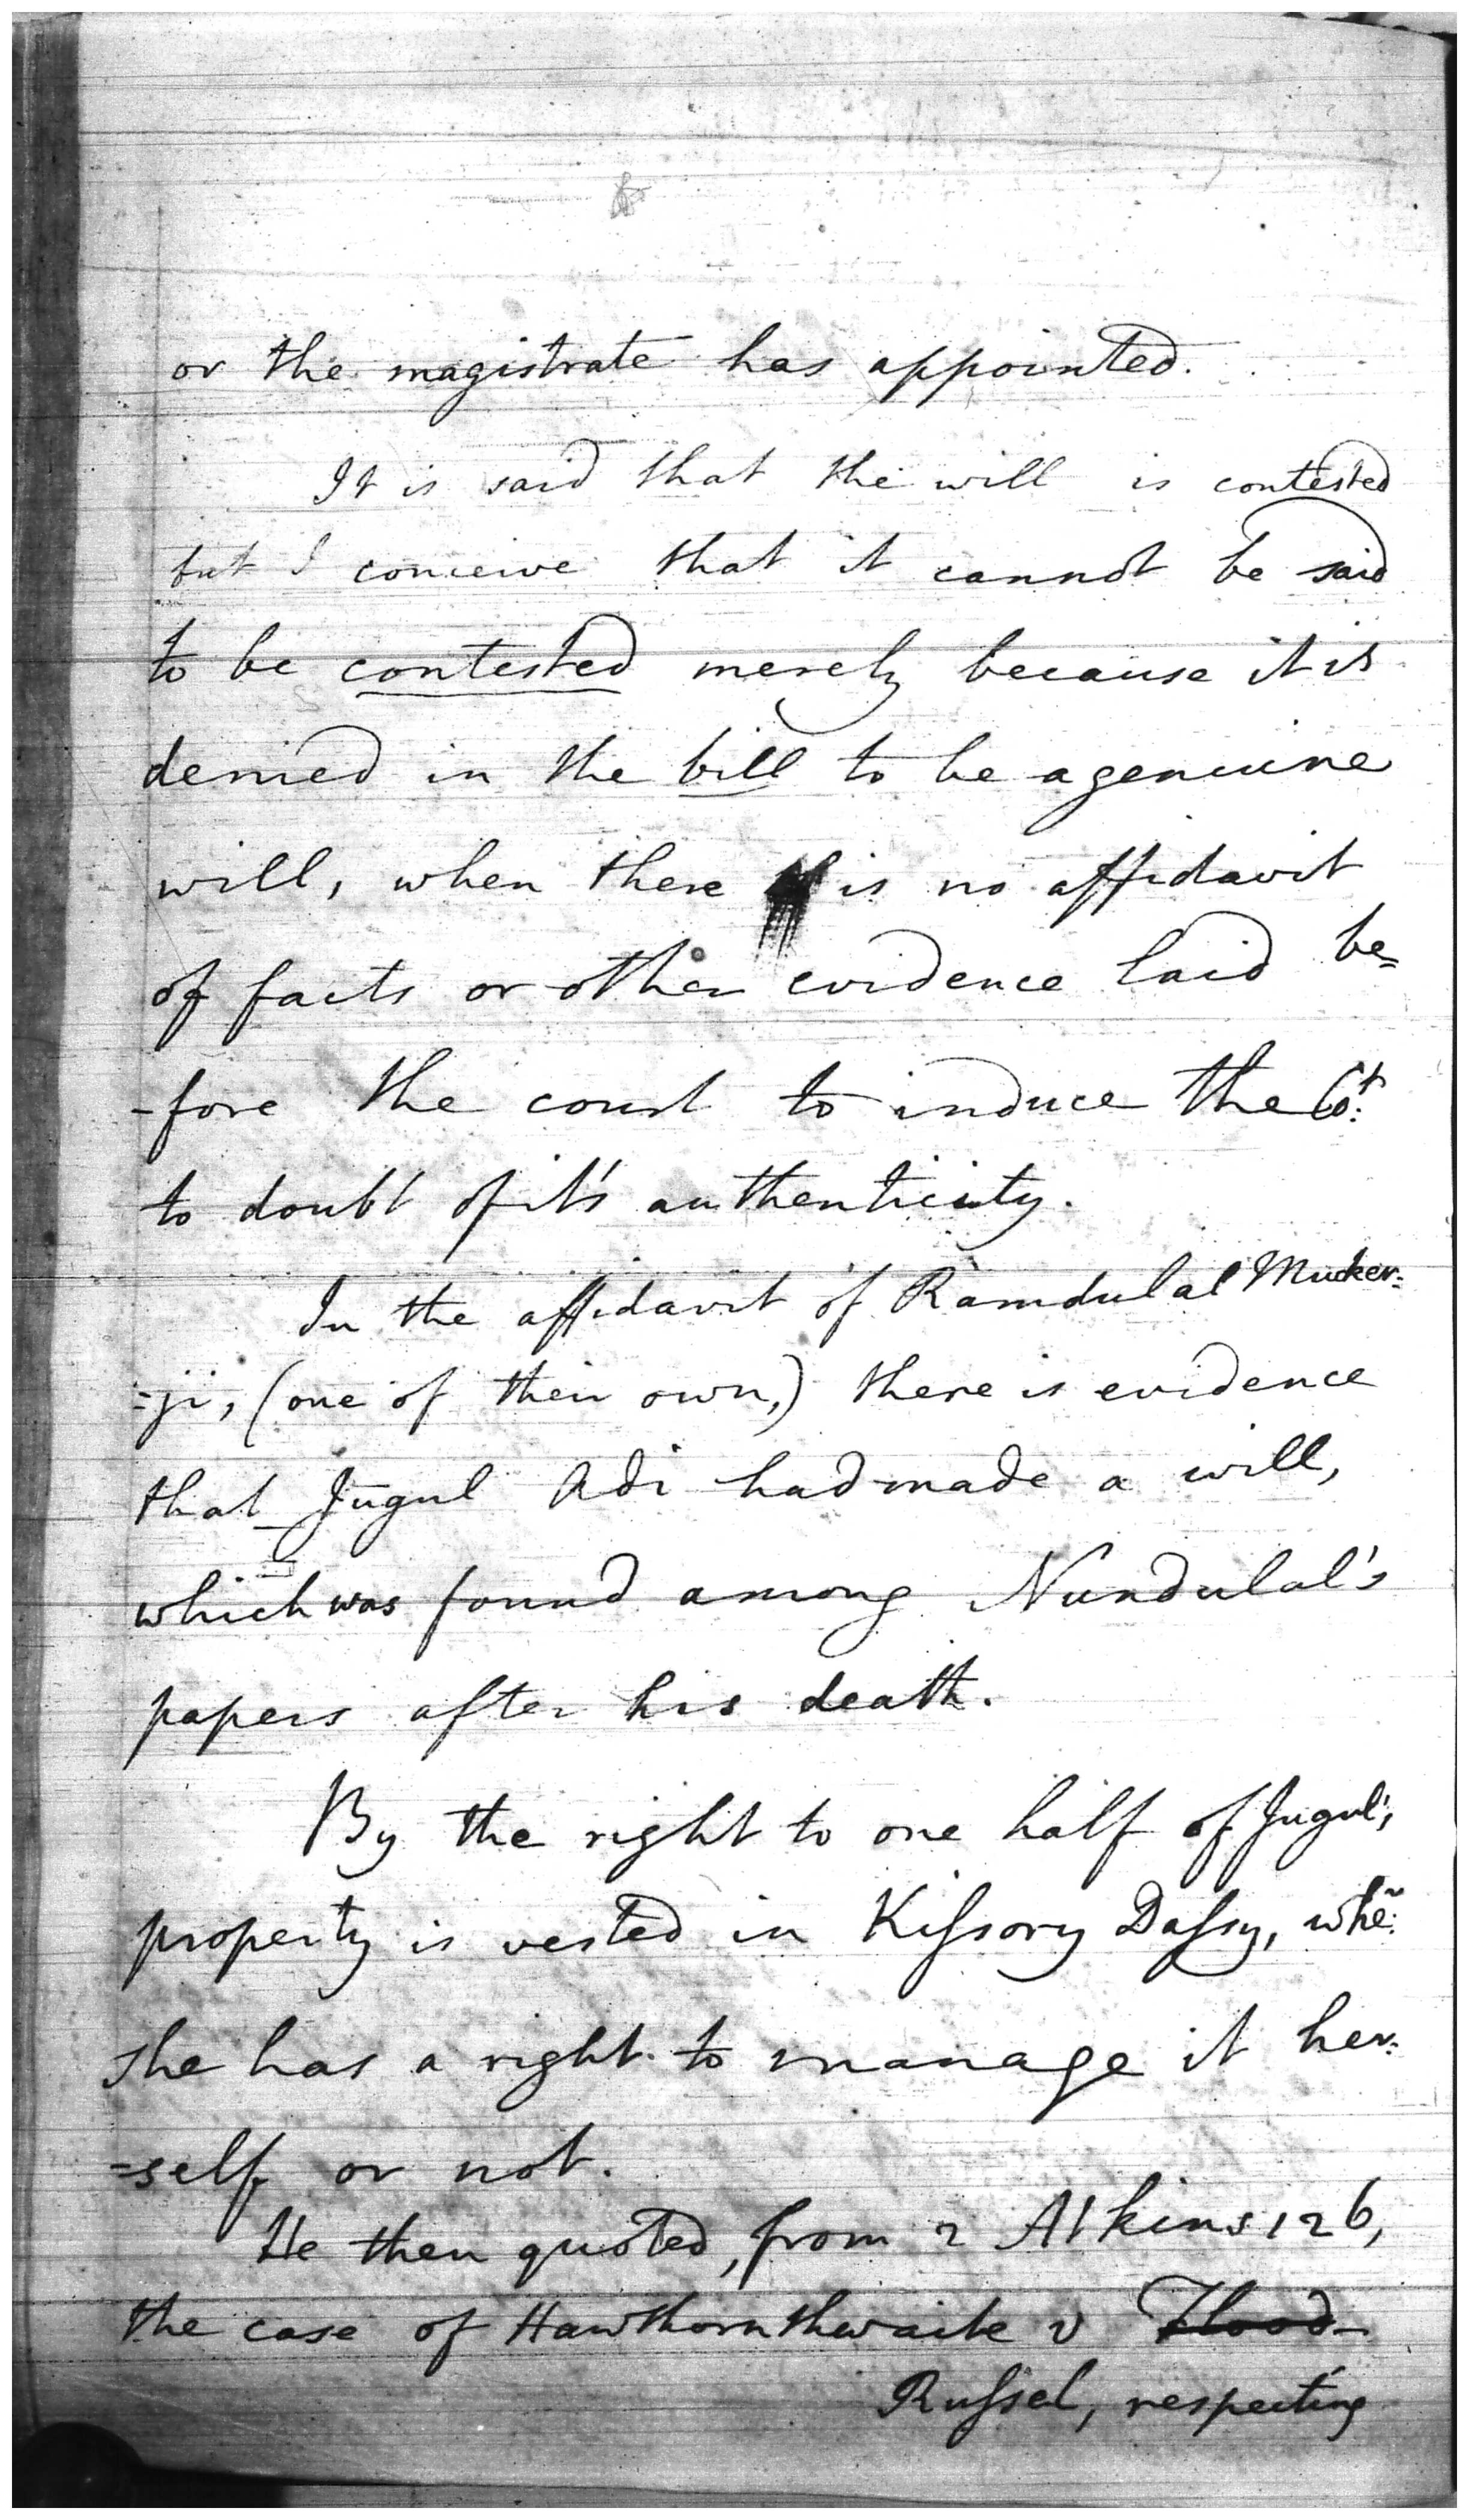 or the magistrate has appointed.
It is said that the will is contested
but I conceive that it cannot be said
to be contested merely because it is
denied in the bill to be a genuine
will, when there is no affidavit
of facts or other evidence laid be=
-fore the court to induce the Cot:
to doubt of it's authenticity.
In the affidavit of Ramdulal Mucker=
=ji, (one of their own,) there is evidence
that Jugul Adi had made a will,
which was found among Nundulal's
papers after his death.
By the right to one half of Jugul's
property is vested in Kissory Dassy, whe:
she has a right to manage it her=
=self or not.
He then quoted, from 2 Atkins 126,
the case of Hawthornthwaite v Flood
Russel, respecting